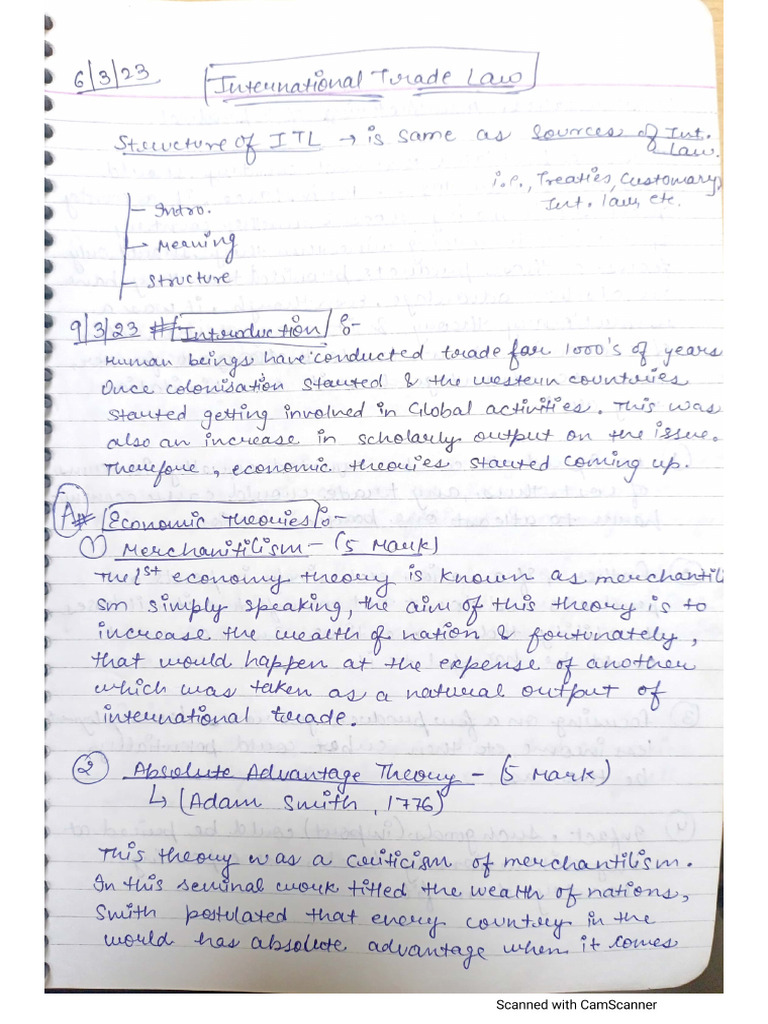 6/3/23 International Trade Law
Structure of ITL → is same as Sources of Int. Law.
i.e., Treaties, Customary Int. law, etc.
- Intro.
→ Meaning
- Structure
9/3/23 # Introduction :-
Human beings have conducted trade for 1000's of years
Once colonisation started & the western countries
started getting involved in Global activities. This was
also an increase in scholarly output on the issue.
Therefore, economic theories started coming up.
A # Economic Theories :-
① Merchanitilism - (5 Mark)
The 1st economy theory is known as merchantili
sm simply speaking, the aim of this theory is to
increase the wealth of nation & fortunately,
that would happen at the expense of another
which was taken as a natural output of
international trade.
② Absolute Advantage Theory - (5 Mark)
↳ (Adam Smith, 1776)
This theory was a criticism of merchantilism.
In this seminal work titled the wealth of nations,
Smith postulated that every country in the
world has absolute advantage when it comes
Scanned with CamScanner